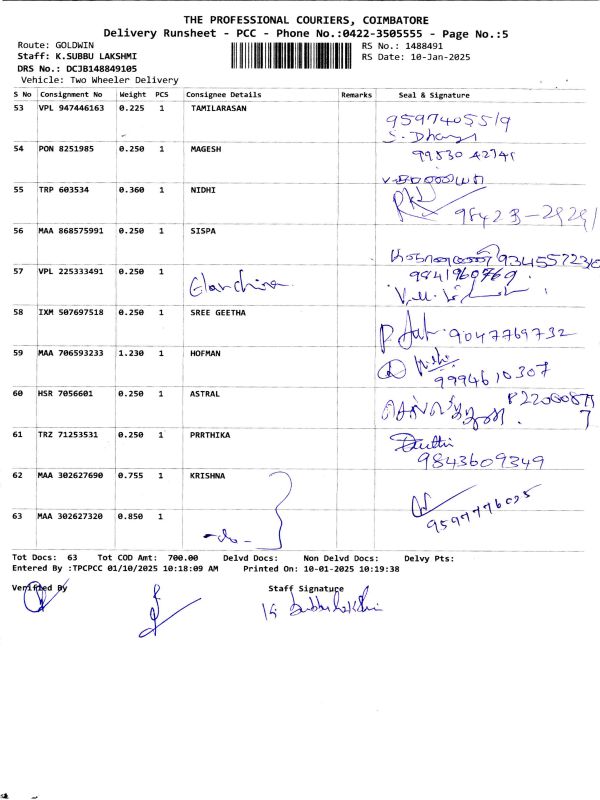 THE PROFESSIONAL COURIERS, COIMBATORE
Delivery Runsheet - PCC - Phone No.:0422-3505555 - Page No.:5
Route: GOLDWIN
RS No.: 1488491
Staff: K.SUBBU LAKSHMI
RS Date: 10-Jan-2025
DRS No.: DCJB148849105
Vehicle: Two Wheeler Delivery
S No Consignment No Weight PCS Consignee Details Remarks Seal & Signature
53 VPL 947446163 0.225 1 TAMILARASAN 9597405519
S. Dhanya
54 PON 8251985 0.250 1 MAGESH 99530 42741
55 TRP 603534 0.360 1 NIDHI
98423-29291
56 MAA 868575991 0.250 1 SISPA
9345572310
57 VPL 225333491 0.250 1 9841960769
58 IXM 507697518 0.250 1 SREE GEETHA
9047769732
59 MAA 706593233 1.230 1 HOFMAN
9994610307
60 HSR 7056601 0.250 1 ASTRAL
61 TRZ 71253531 0.250 1 PRRTHIKA
9843609349
62 MAA 302627690 0.755 1 KRISHNA
9597776095
63 MAA 302627320 0.850 1 -do-
Tot Docs: 63 Tot COD Amt: 700.00 Delvd Docs: Non Delvd Docs: Delvy Pts:
Entered By :TPCPCC 01/10/2025 10:18:09 AM Printed On: 10-01-2025 10:19:38
Verified By Staff Signature
K. Subbulakshmi